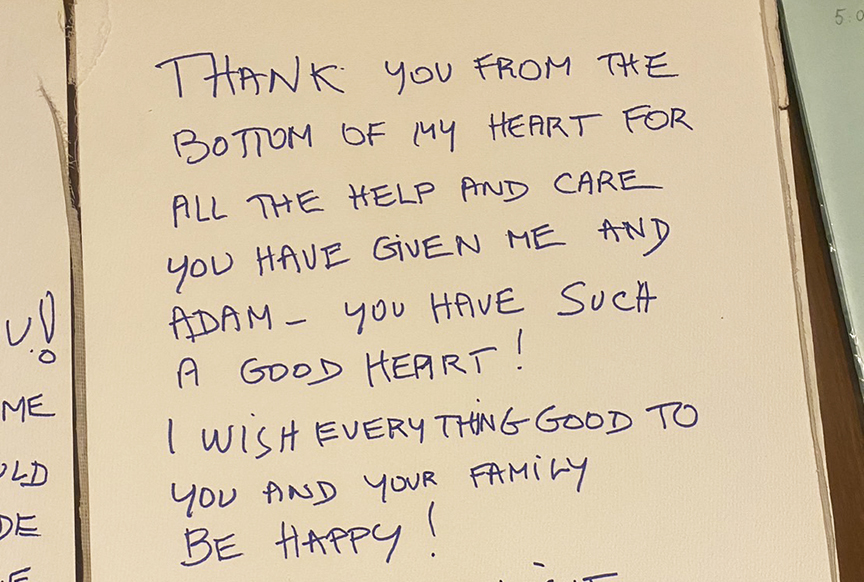 THANK YOU FROM THE
BOTTOM OF MY HEART FOR
ALL THE HELP AND CARE
YOU HAVE GIVEN ME AND
ADAM – YOU HAVE SUCH
A GOOD HEART!
I WISH EVERYTHING GOOD TO
YOU AND YOUR FAMILY
BE HAPPY!
U!
ME